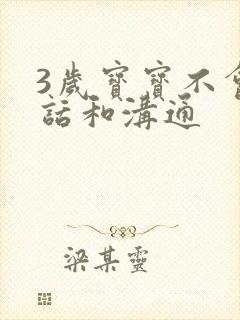 3歲寶寶不會
話和溝通
梁某靈